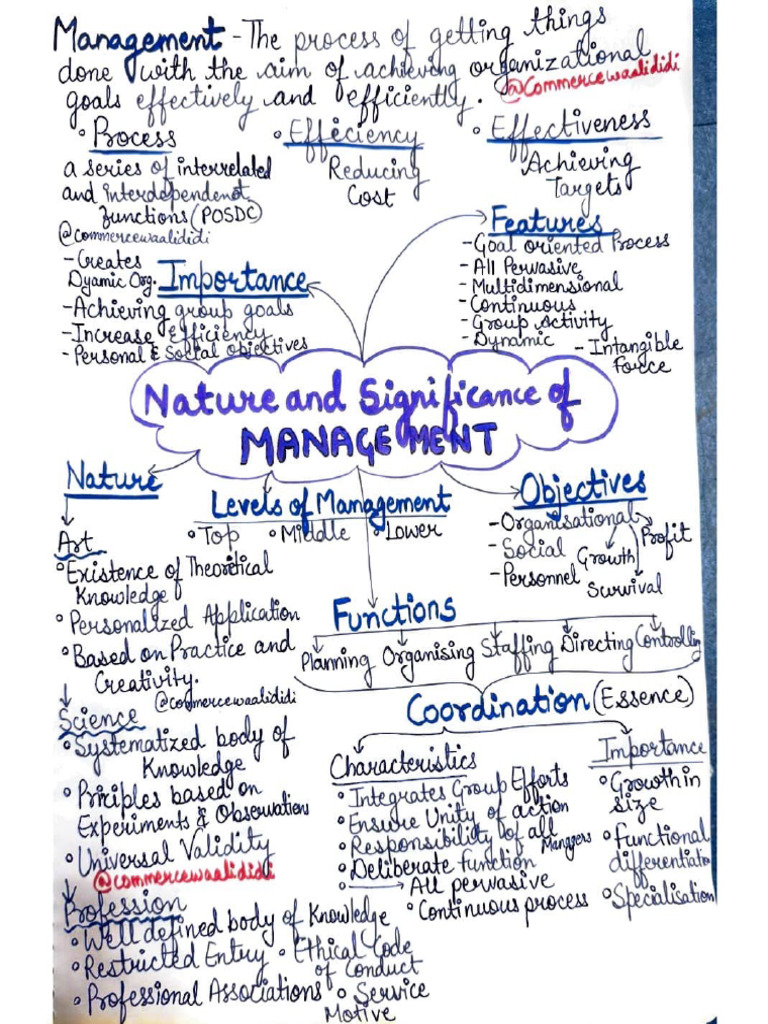 Management - The process of getting things
done with the aim of achieving organizational
goals effectively and efficiently.
@commercewaalididi
• Process
a series of interrelated
and interdependenet
functions (POSDC)
@commercewaalididi
• Efficiency
Reducing
Cost
• Effectiveness
Achieving
Targets
Features
- Goal oriented Process
- All Pervasive
- Multidimensional
- Continuous
- Group Activity
- Dynamic
- Intangible
Force
Importance
- Creates
Dyamic Org.
- Achieving group goals
- Increase Efficiency
- Personal & Social objectives
Nature and Significance of
MANAGEMENT
Nature
Art
• Existence of Theoretical
Knowledge
• Personalized Application
• Based on Practice and
Creativity.
@commercewaalididi
Science
• Systematized body of
Knowledge
• Priciples based on
Experiments & Observations
• Universal Validity
@commercewaalididi
Profession
• Well defined body of Knowledge
• Restricted Entry • Ethical Code
of Conduct
• Professional Associations • Service
Motive
Levels of Management
• Top • Middle • Lower
Objectives
- Organisational
- Social
- Personnel
Profit
Growth
Survival
Functions
Planning Organising Staffing Directing Controlling
Coordination (Essence)
Characteristics
• Integrates Group Efforts
• Ensure Unity of action
• Responsibility of all
Mangers
• Deliberate function
• All pervasive
• Continuous process
Importance
• Growth in
size
• Functional
differentiatio
• Specialisation